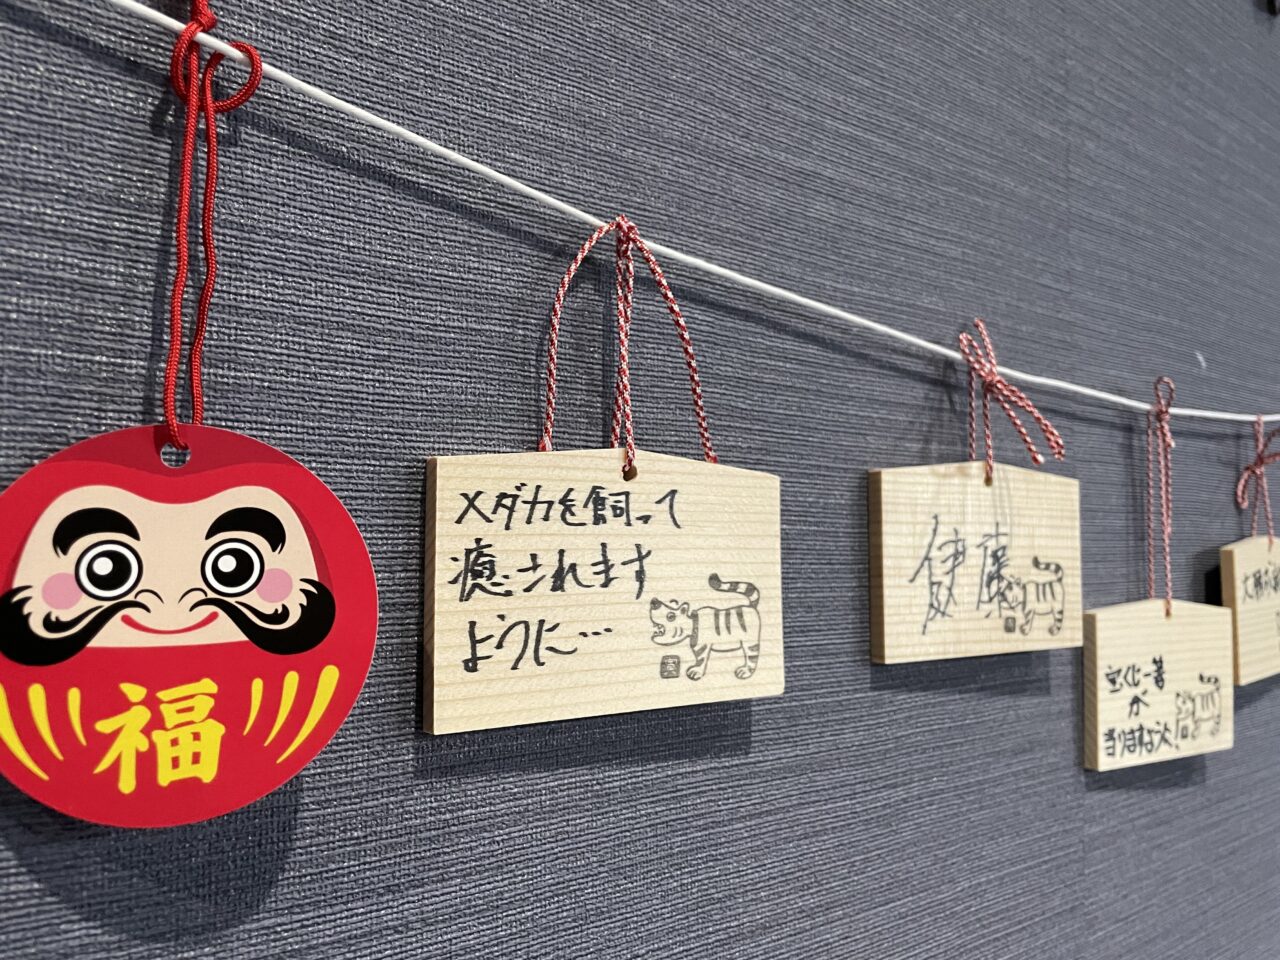 福
メダカを飼って
癒されます
ように…
伊藤
宝くじ一等
が
当りますように!